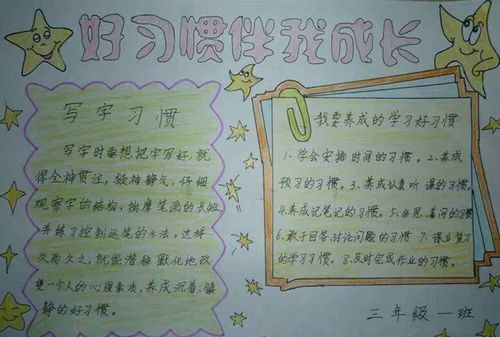 好习惯伴我成长
写字习惯
写字时要想把字写好，就
得全神贯注，凝神静气，仔细
观察字的结构，揣摩笔画的长短，
并练习控制运笔的方法。这样
久而久之，就能潜移默化地改
变一个人的心理素质，养成沉着、镇
静的好习惯。
我要养成的学习好习惯
1、学会安排时间的习惯。2、养成
预习的习惯。3、养成认真听课的习惯。
4、养成记笔记的习惯。5、多思、善问的习惯
6、敢于回答、讨论问题的习惯 7、课后复习
的学习习惯。8、及时完成作业的习惯。
三年级一班